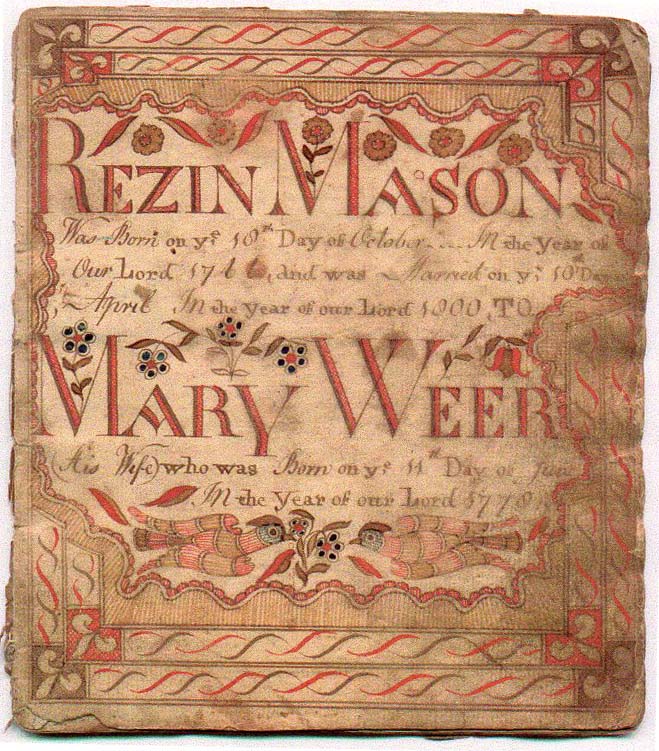 REZIN MASON
Was Born on yᵉ Day of October In the Year of
Our Lord and was Married on yᵉ Day
April In the year of our Lord 1800, TO
MARY WEER
(His Wife) who was Born on yᵉ 11th Day of
In the Year of our Lord 1778